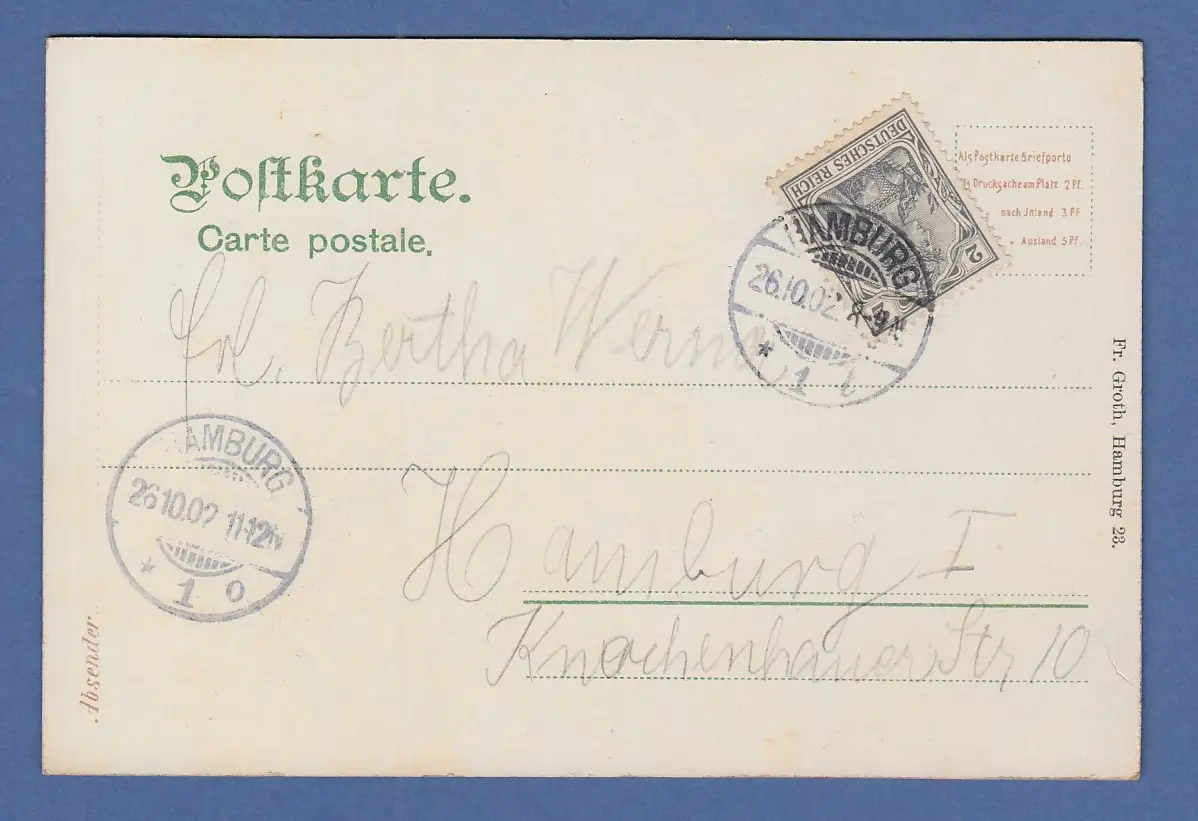 Postkarte.
Carte postale.
DEUTSCHES REICH
2
Als Postkarte Briefporto
als Drucksache am Platz 2 Pf.
nach Inland 3 Pf
" Ausland 5 Pf.
HAMBURG
26.10.02. 8-9N
* 1 l
Frl. Bertha Werner
HAMBURG
26.10.02 11-12N
* 1 o
Hamburg I
Knochenhauer Str 10
Absender
Fr. Groth, Hamburg 23.